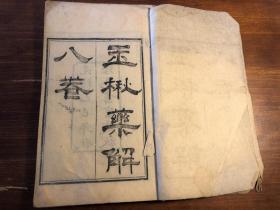 玉楸藥解
八卷